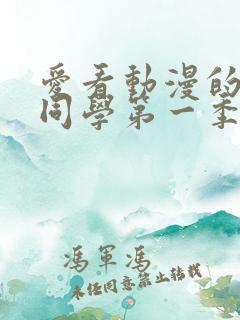 愛看動漫的
同學第一季
馮軍馮
未經同意禁止轉載